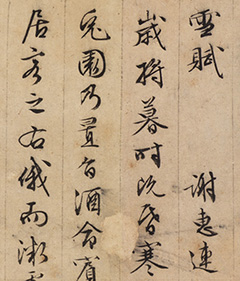 雪賦 謝惠連
歲將暮時既昏寒
兔園乃置旨酒命賓
居客之右俄而微